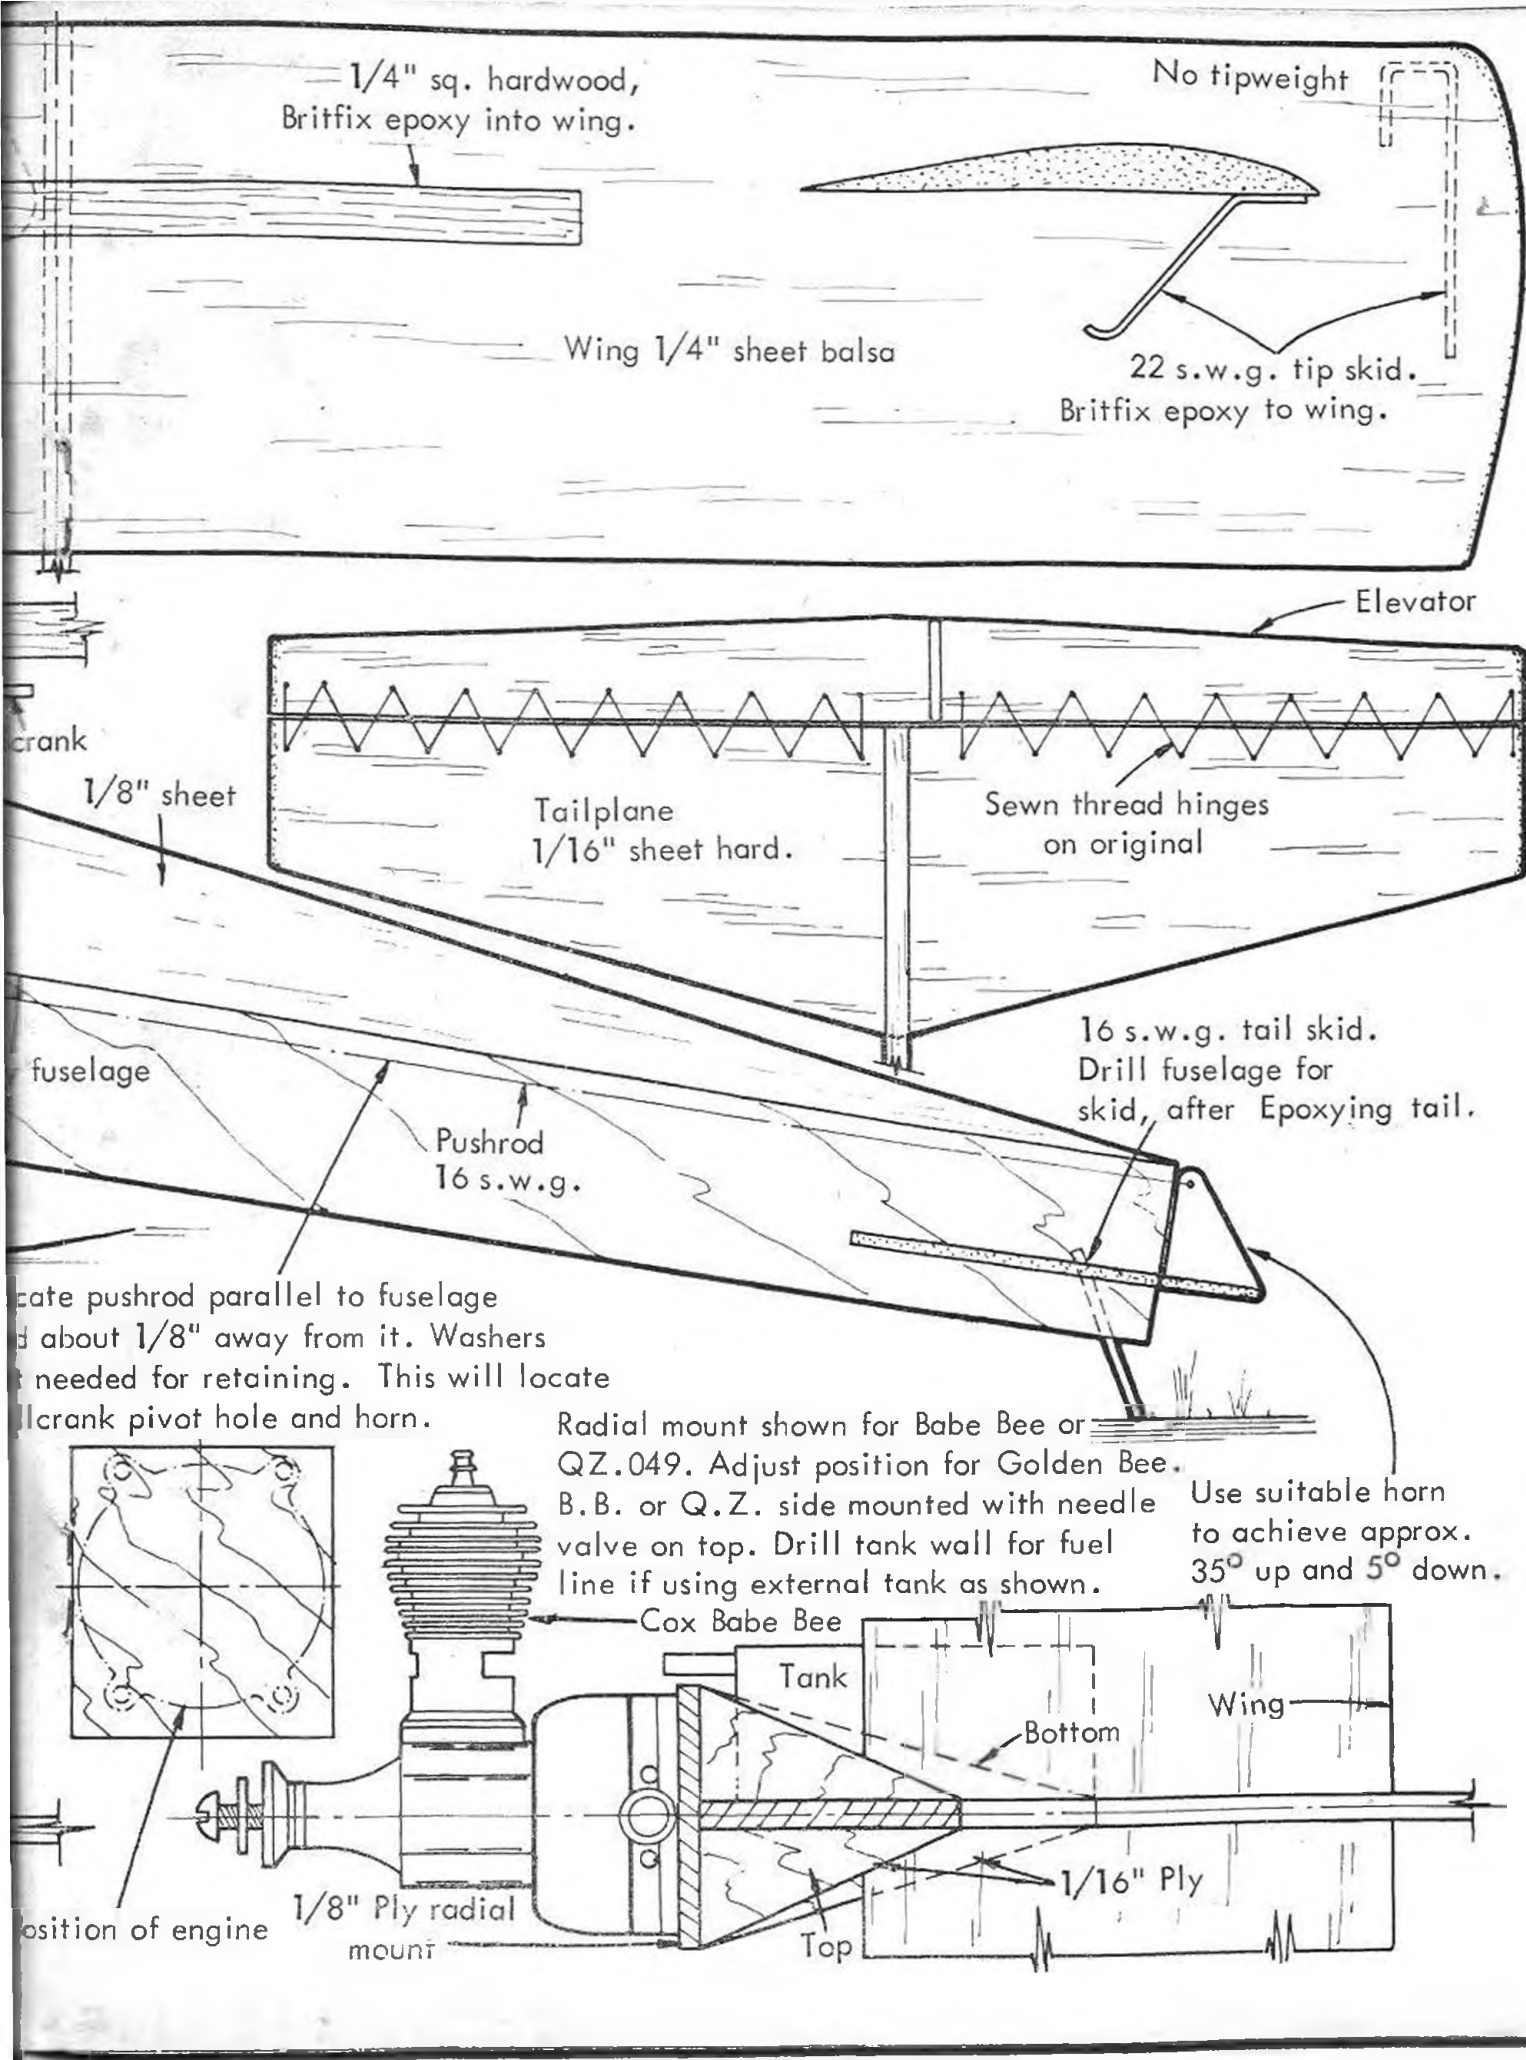 1/4" sq. hardwood,
Britfix epoxy into wing.
No tipweight
Wing 1/4" sheet balsa
22 s.w.g. tip skid.
Britfix epoxy to wing.
Elevator
crank
1/8" sheet
Tailplane
1/16" sheet hard.
Sewn thread hinges
on original
fuselage
Pushrod
16 s.w.g.
16 s.w.g. tail skid.
Drill fuselage for
skid, after Epoxying tail.
cate pushrod parallel to fuselage
d about 1/8" away from it. Washers
t needed for retaining. This will locate
llcrank pivot hole and horn.
Radial mount shown for Babe Bee or
QZ.049. Adjust position for Golden Bee.
B.B. or Q.Z. side mounted with needle
valve on top. Drill tank wall for fuel
line if using external tank as shown.
Use suitable horn
to achieve approx.
35° up and 5° down.
Cox Babe Bee
Tank
Wing
Bottom
1/16" Ply
Top
1/8" Ply radial
mount
osition of engine